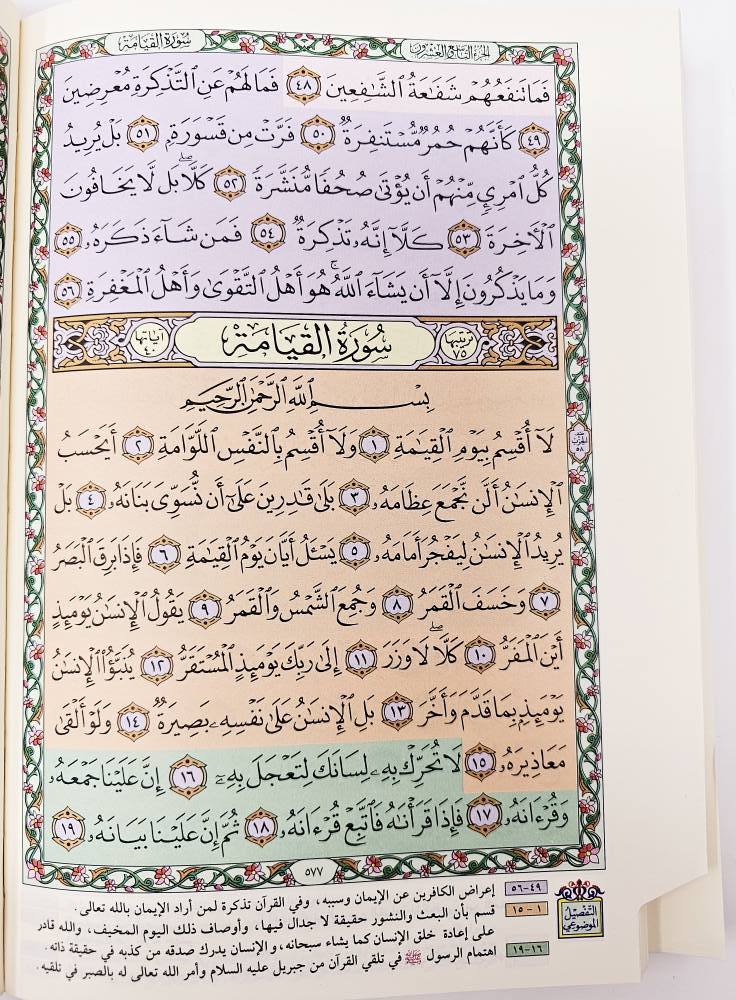 الجزء التاسع والعشرون
سُورَةُ القِيَامَةِ
فَمَا تَنفَعُهُمْ شَفَٰعَةُ ٱلشَّٰفِعِينَ ٤٨ فَمَا لَهُمْ عَنِ ٱلتَّذْكِرَةِ مُعْرِضِينَ
٤٩ كَأَنَّهُمْ حُمُرٌ مُّسْتَنفِرَةٌ ٥٠ فَرَّتْ مِن قَسْوَرَةٍ ٥١ بَلْ يُرِيدُ
كُلُّ ٱمْرِئٍ مِّنْهُمْ أَن يُؤْتَىٰ صُحُفًا مُّنَشَّرَةً ٥٢ كَلَّا ۖ بَل لَّا يَخَافُونَ
ٱلْأَخِرَةَ ٥٣ كَلَّآ إِنَّهُۥ تَذْكِرَةٌ ٥٤ فَمَن شَآءَ ذَكَرَهُۥ ٥٥
وَمَا يَذْكُرُونَ إِلَّآ أَن يَشَآءَ ٱللَّهُ ۚ هُوَ أَهْلُ ٱلتَّقْوَىٰ وَأَهْلُ ٱلْمَغْفِرَةِ ٥٦
ترتيبها ٧٥
سُورَةُ القِيَامَةِ
آياتها ٤٠
بِسْمِ ٱللَّهِ ٱلرَّحْمَٰنِ ٱلرَّحِيمِ
لَآ أُقْسِمُ بِيَوْمِ ٱلْقِيَٰمَةِ ١ وَلَآ أُقْسِمُ بِٱلنَّفْسِ ٱللَّوَّامَةِ ٢ أَيَحْسَبُ
ٱلْإِنسَٰنُ أَلَّن نَّجْمَعَ عِظَامَهُۥ ٣ بَلَىٰ قَٰدِرِينَ عَلَىٰٓ أَن نُّسَوِّىَ بَنَانَهُۥ ٤ بَلْ
يُرِيدُ ٱلْإِنسَٰنُ لِيَفْجُرَ أَمَامَهُۥ ٥ يَسْـَٔلُ أَيَّانَ يَوْمُ ٱلْقِيَٰمَةِ ٦ فَإِذَا بَرِقَ ٱلْبَصَرُ
٧ وَخَسَفَ ٱلْقَمَرُ ٨ وَجُمِعَ ٱلشَّمْسُ وَٱلْقَمَرُ ٩ يَقُولُ ٱلْإِنسَٰنُ يَوْمَئِذٍ
أَيْنَ ٱلْمَفَرُّ ١٠ كَلَّا لَا وَزَرَ ١١ إِلَىٰ رَبِّكَ يَوْمَئِذٍ ٱلْمُسْتَقَرُّ ١٢ يُنَبَّؤُا۟ ٱلْإِنسَٰنُ
يَوْمَئِذٍۭ بِمَا قَدَّمَ وَأَخَّرَ ١٣ بَلِ ٱلْإِنسَٰنُ عَلَىٰ نَفْسِهِۦ بَصِيرَةٌ ١٤ وَلَوْ أَلْقَىٰ
مَعَاذِيرَهُۥ ١٥ لَا تُحَرِّكْ بِهِۦ لِسَانَكَ لِتَعْجَلَ بِهِۦٓ ١٦ إِنَّ عَلَيْنَا جَمْعَهُۥ
وَقُرْءَانَهُۥ ١٧ فَإِذَا قَرَأْنَٰهُ فَٱتَّبِعْ قُرْءَانَهُۥ ١٨ ثُمَّ إِنَّ عَلَيْنَا بَيَانَهُۥ ١٩
الحزب
٥٨
٥٧٧
التفصيل
الموضوعي
٤٩-٥٦ إعراض الكافرين عن الإيمان وسببه، وفي القرآن تذكرة لمن أراد الإيمان بالله تعالى.
١ - ١٥ قسم بأن البعث والنشور حقيقة لا جدال فيها، وأوصاف ذلك اليوم المخيف، والله قادر
على إعادة خلق الإنسان كما يشاء سبحانه، والإنسان يدرك صدقه من كذبه في حقيقة ذاته.
١٦-١٩ اهتمام الرسول ﷺ في تلقي القرآن من جبريل عليه السلام وأمر الله تعالى له بالصبر في تلقيه.